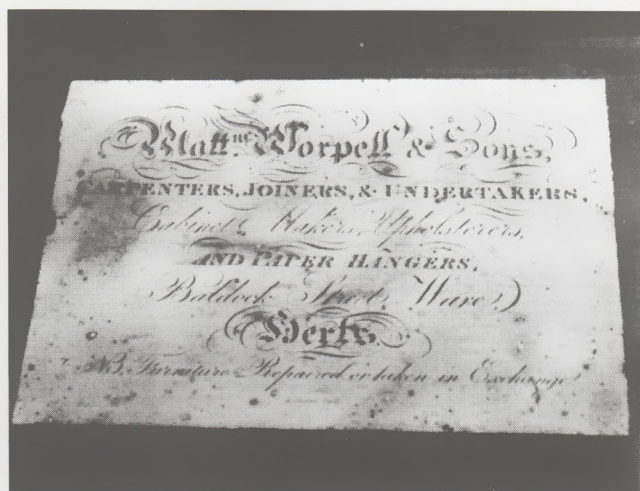 Mattw. Worpell & Sons,
CARPENTERS, JOINERS, & UNDERTAKERS,
Cabinet Makers, Upholsterers,
AND PAPER HANGERS,
Baldock Street, Ware,
Herts.
NB. Furniture Repaired or taken in Exchange